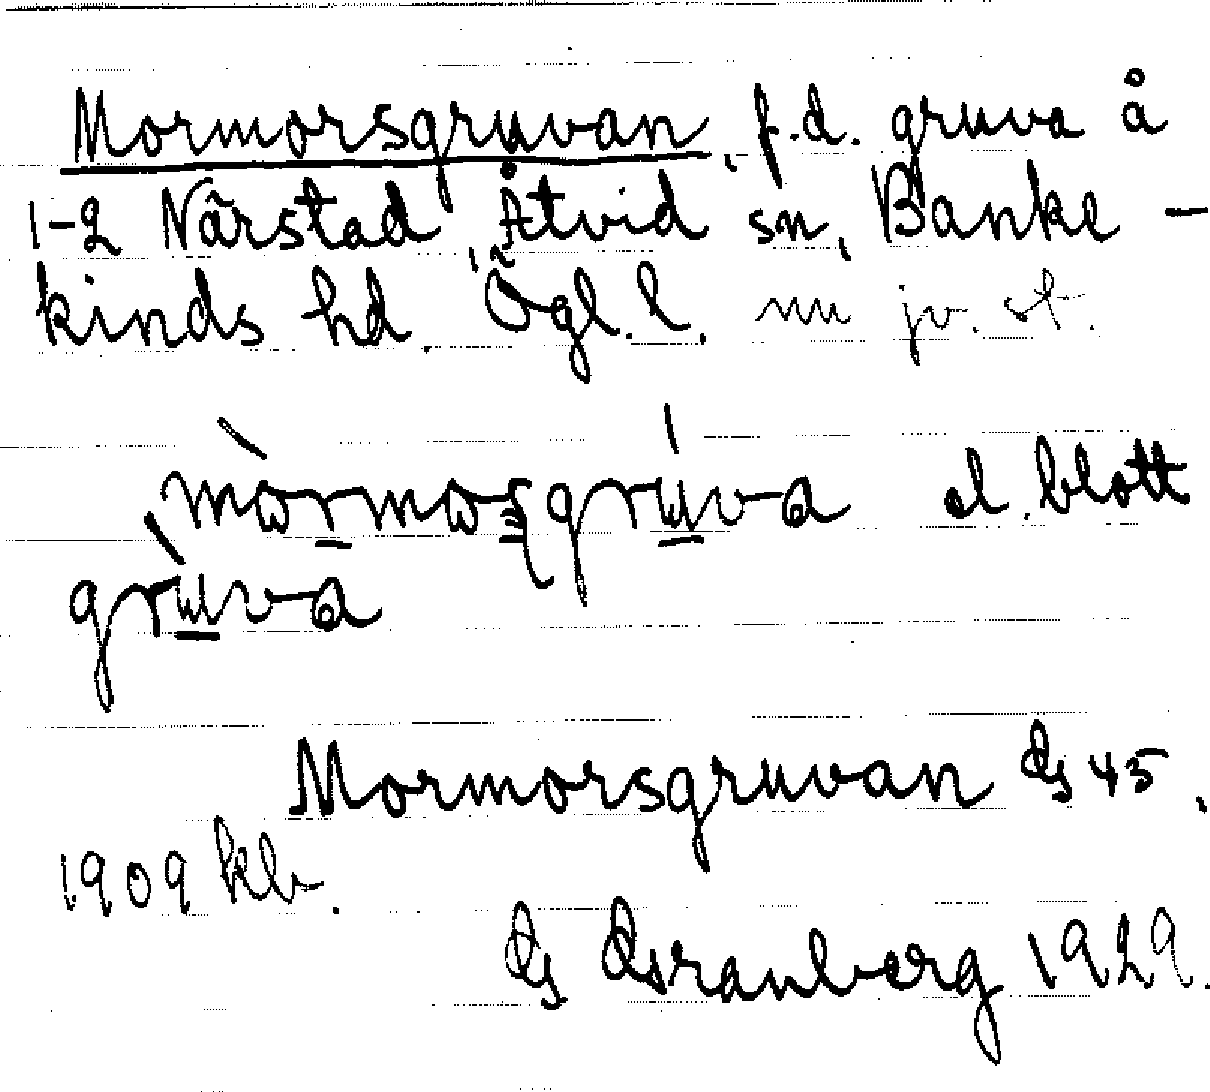 Mormorsgruvan, f.d. gruva å
1-2 Närstad, Åtvid sn, Banke-
kinds hd, Ögl. l. nu jv. st.
mòrmosgrúva el. blott
grùva
Mormorsgruvan 45.
1909 kb.
Granberg 1929.